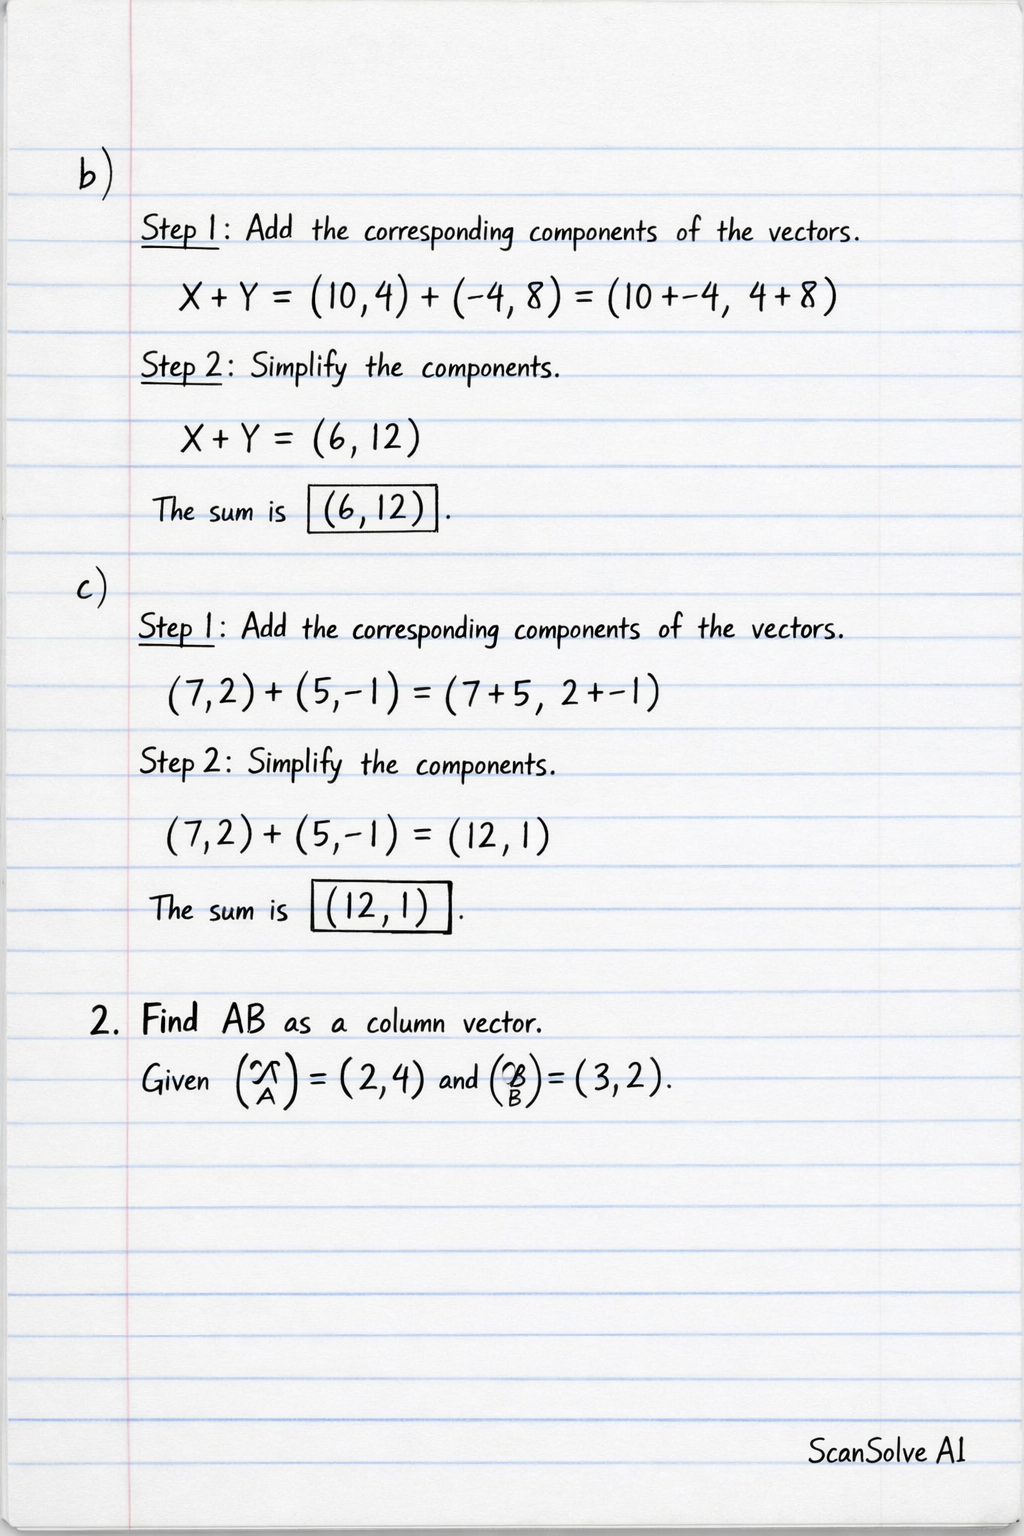 b)
Step 1: Add the corresponding components of the vectors.
X + Y = (10, 4) + (-4, 8) = (10 + -4, 4 + 8)
Step 2: Simplify the components.
X + Y = (6, 12)
The sum is (6, 12).
c)
Step 1: Add the corresponding components of the vectors.
(7, 2) + (5, -1) = (7 + 5, 2 + -1)
Step 2: Simplify the components.
(7, 2) + (5, -1) = (12, 1)
The sum is (12, 1).
2. Find AB as a column vector.
Given (A) = (2, 4) and (B) = (3, 2).
ScanSolve AI